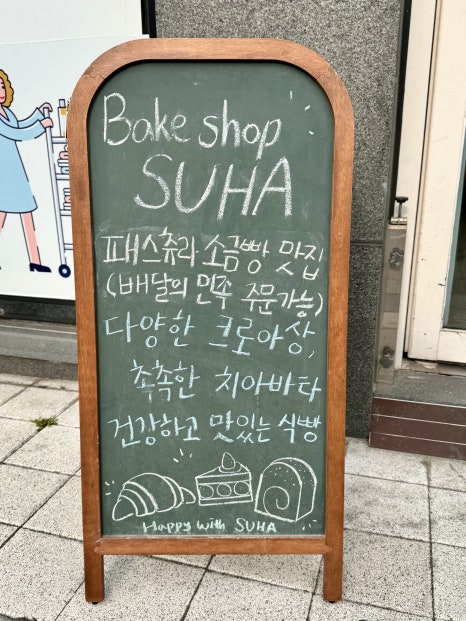 Bake shop
SUHA
패스츄리 소금빵 맛집
(배달의 민족 주문가능)
다양한 크로아상,
촉촉한 치아바타
건강하고 맛있는 식빵
Happy with SUHA